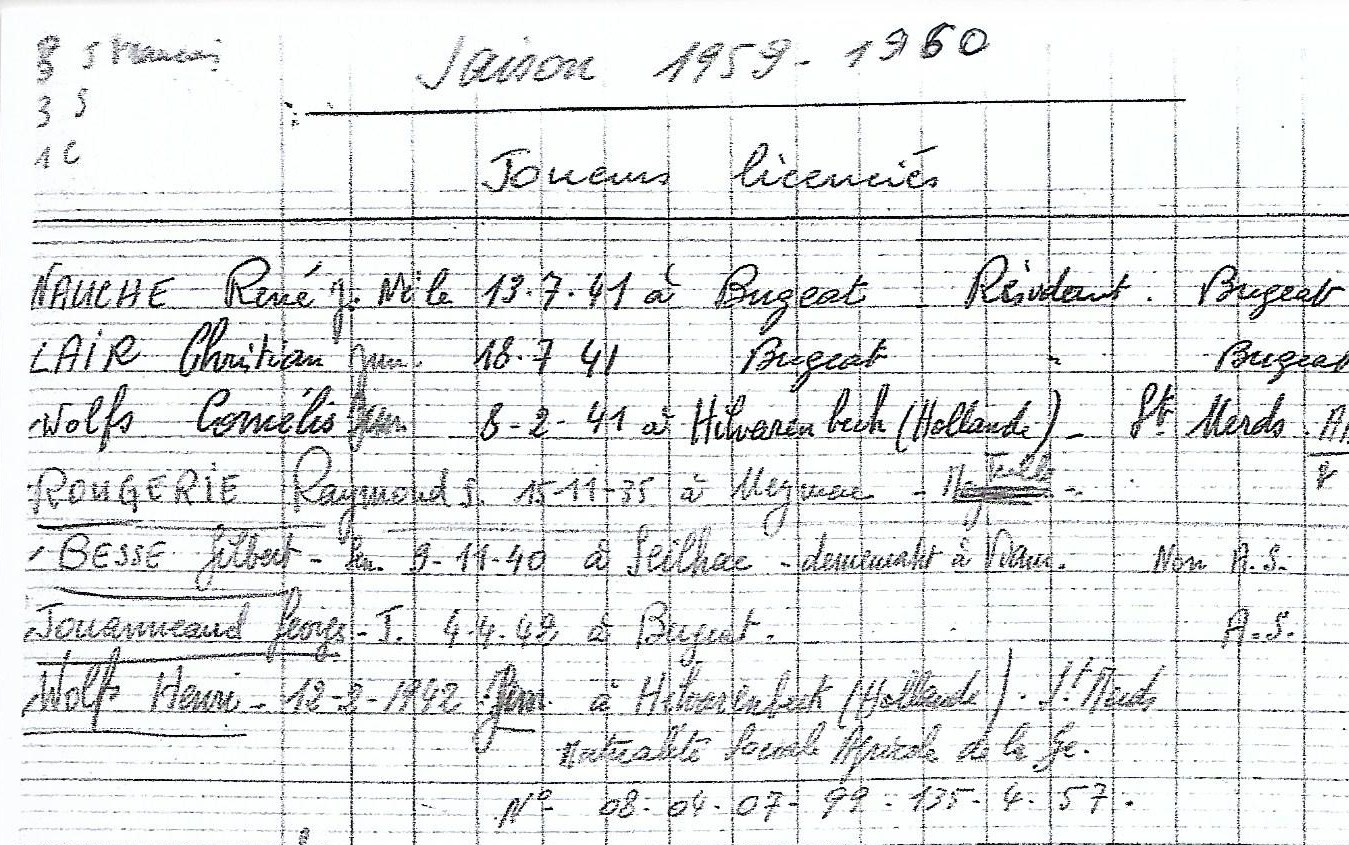 Saison 1959-1960
3 S
1 C
Joueurs licenciés
NAUCHE René J. Mle 13.7.41 à Bugeat Résidant. Bugeat
LAIR Christian Jun. 18.7 41 Bugeat " Bugeat
Wolfs Cornélis Jun. 8-2-41 à Hilvarenbeek (Hollande) - St Merds.
ROUGERIE Raymond S. 15-11-35 à Meymac -
BESSE Gilbert - Sen. 9-11-40 à Seilhac - demeurant à Viam. Non A.S.
Jouanneaud Georges - J. 4-4-42 à Bugeat. A.S.
Wolfs Henri - 12-2-1942 Jun. à Hilvarenbeek (Hollande). St Merds
Mutualité Sociale Agricole de la
N° 08-04-07-99-135-4-57.